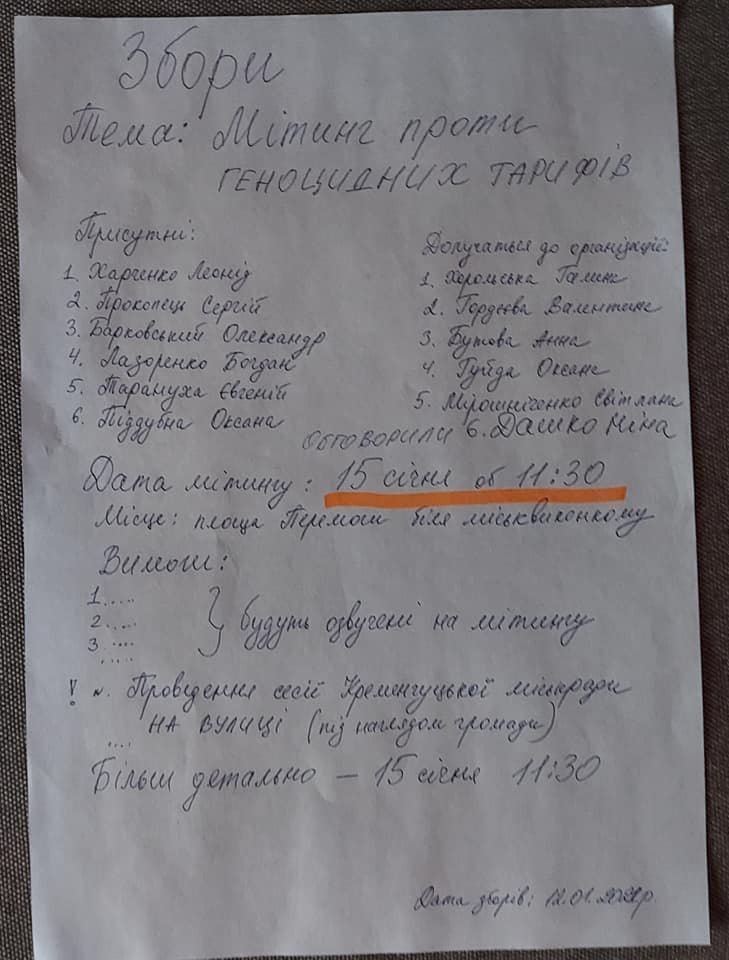 Збори
Тема: Мітинг проти
ГЕНОЦИДНИХ ТАРИФІВ
Присутні:
1. Харченко Леонід
2. Прокопець Сергій
3. Барковський Олександр
4. Лазоренко Богдан
5. Тарануха Євгеній
6. Піддубна Оксана
Долучаться до організації:
1. Хорольська Галина
2. Гордєєва Валентина
3. Бутова Анна
4. Гуйда Оксана
5. Мірошніченко Світлана
6. Дашко Ніна
ОБГОВОРИЛИ
Дата мітингу: 15 січня об 11:30
Місце: площа Перемоги біля міськвиконкому
Вимоги:
1.....
2.....
3.....
.....
будуть озвучені на мітингу
! N. Проведення сесії Кременчуцької міськради
НА ВУЛИЦІ (під наглядом громади)
....
Більш детально – 15 січня 11:30
Дата зборів: 12.01.2021р.